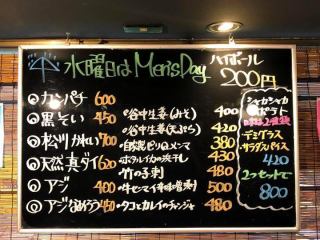 水曜日は Men'sDay
ハイボール
200円
カンパチ 600
黒そい 450
松川かれい 700
天然真ダイ 620
アジ 400
アジなめろう 450
谷中生姜(みそ) 400
谷中生姜(天ぷら) 420
自家製ピリ辛メンマ 380
ホタルイカの沖干し 430
竹の子刺 480
牛センマイ辛味噌漬 500
タコとカレイのチャンジャ 480
シャカシャカ
ポテト
デミグラス
サラダスパイス
420
2つセットで
800